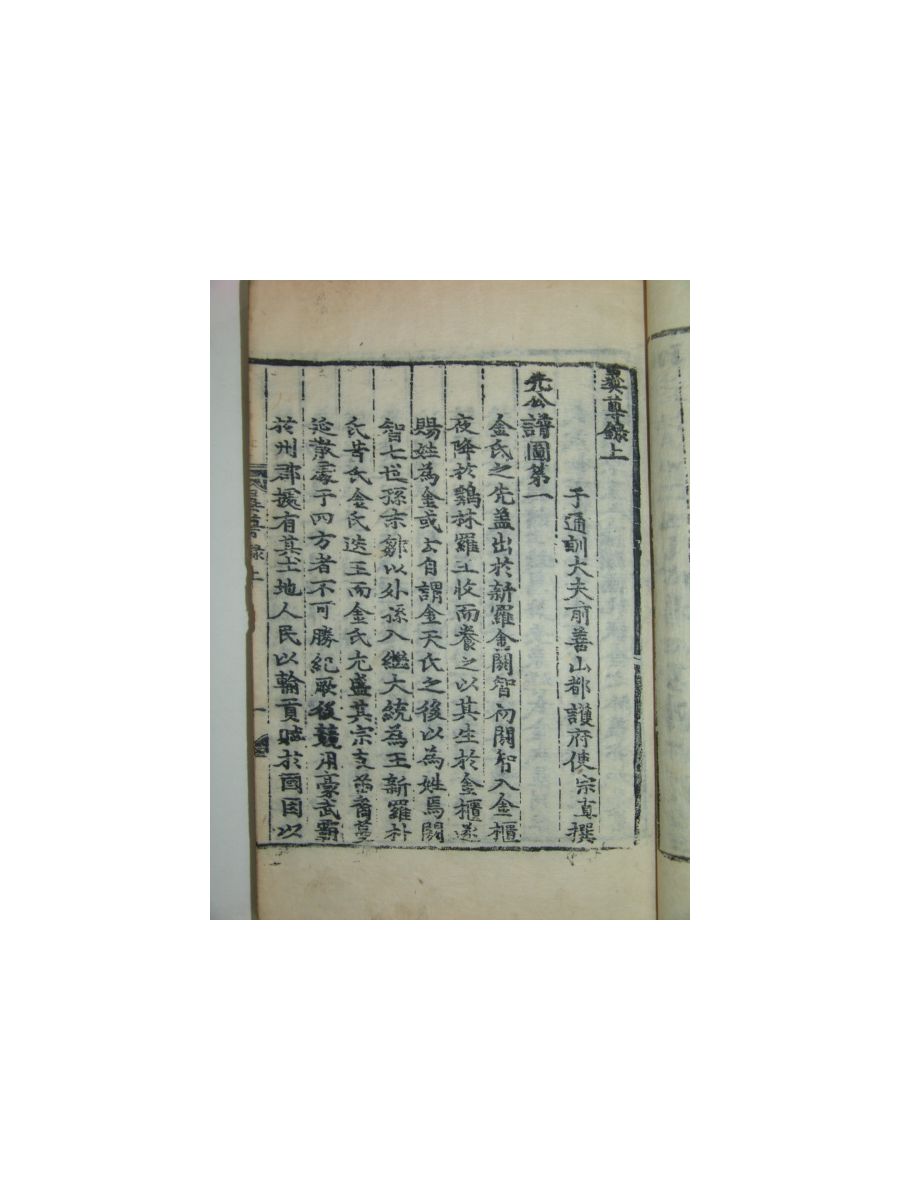 彛尊錄上
子通訓大夫前善山都護府使宗直撰
先公譜圖第一
金氏之先盖出於新羅金閼智初閼智入金櫃
夜降於鷄林羅王收而養之以其生於金櫃遂
賜姓為金或云自謂金天氏之後以為姓焉閼
智七世孫末鄒以外孫入繼大統為王新羅朴
氏昔氏金氏迭王而金氏尤盛其宗支苗裔蔓
延散處于四方者不可勝紀厥後競用豪武霸
於州郡據有其土地人民以輸貢賦於國因以
彛尊録上
一